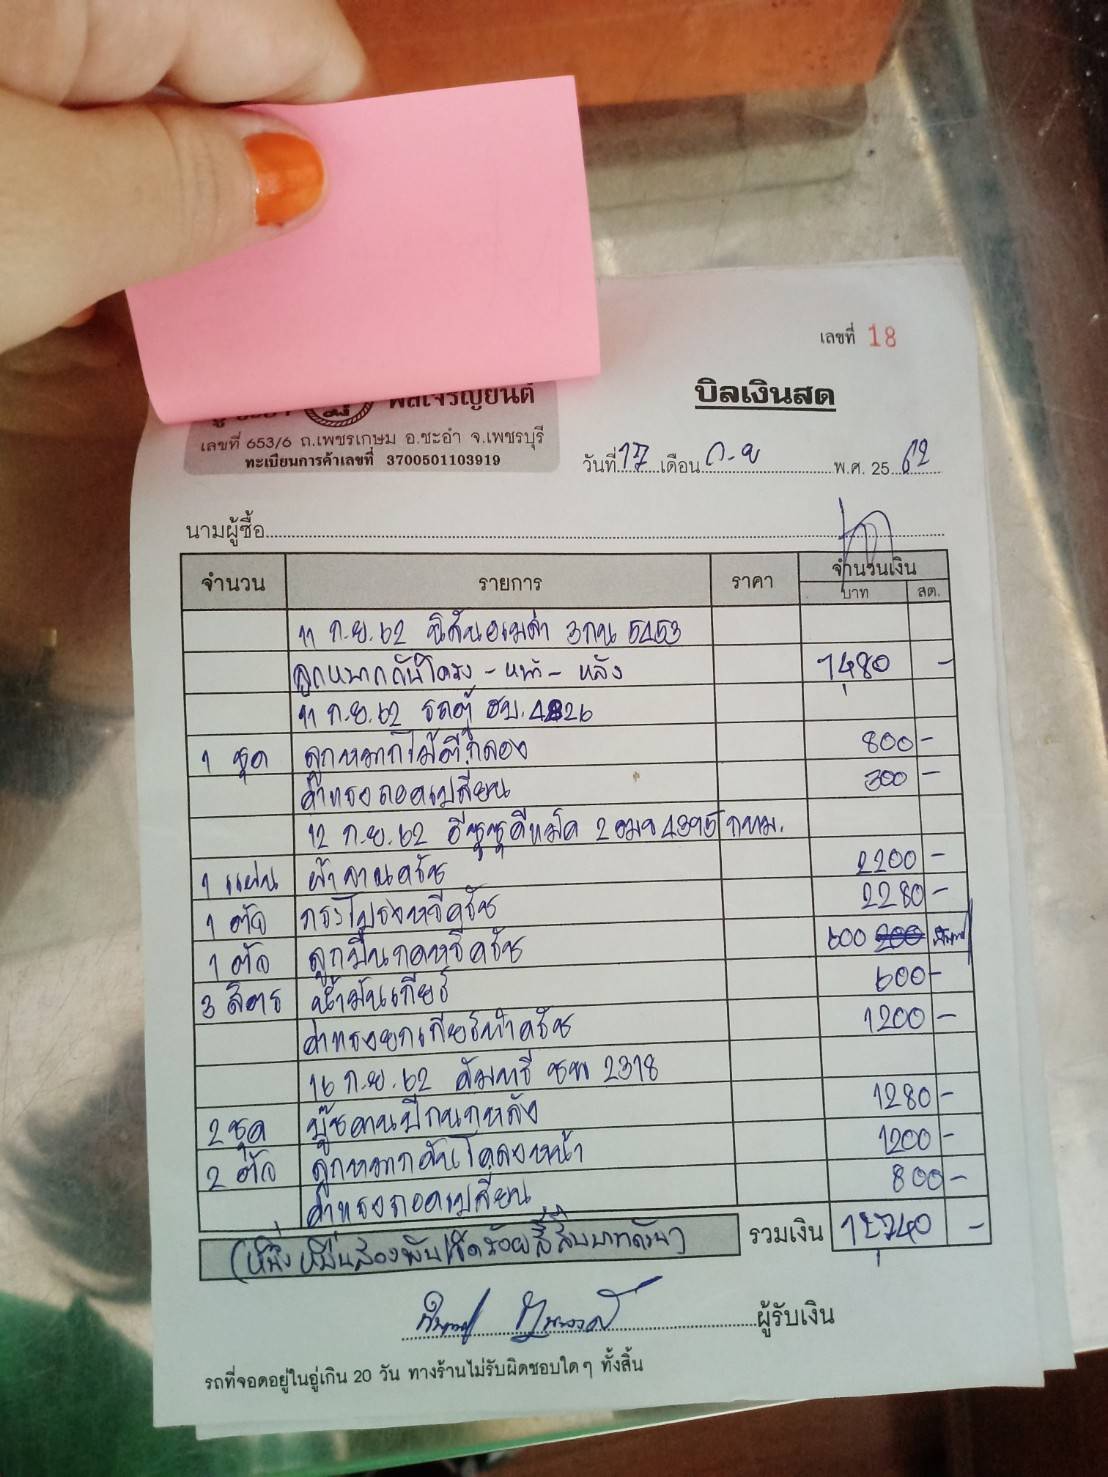 เลขที่ 18
บิลเงินสด
เจริญยนต์
เลขที่ 653/6 ถ.เพชรเกษม อ.ชะอำ จ.เพชรบุรี
ทะเบียนการค้าเลขที่ 3700501103919
วันที่ 17 เดือน ก.ย พ.ศ. 25 62
นามผู้ซื้อ
จำนวน รายการ ราคา จำนวนเงิน
บาท สต.
11 ก.ย. 62 นิสสันอเมด้า 3กน 5453
ลูกหมากกันโครง - หน้า - หลัง 1480 -
11 ก.ย. 62 รถตู้ ฮบ. 4826
1 ชุด ลูกหมากไม้ตีกลอง 800 -
ค่าแรงถอดเปลี่ยน 300 -
12 ก.ย. 62 อีซูซุดีแม็ค 2ฒฆ 4395 กทม.
1 แผ่น ผ้าจานครัช 2200 -
1 ตัว กระโปรงหวีครัช 2280 -
1 ตัว ลูกปืนกดหวีครัช 600
3 ลิตร น้ำมันเกียร์ 600 -
ค่าแรงยกเกียร์ทำครัช 1200 -
16 ก.ย. 62 คัมรี่ ชพ 2318
2 ชุด บู๊ชคานปีกนกหลัง 1280 -
2 ตัว ลูกหมากกันโคลงหน้า 1200 -
ค่าแรงถอดเปลี่ยน 800 -
(หนึ่งหมื่นสองพันเจ็ดร้อยสี่สิบบาทถ้วน) รวมเงิน 12740 -
ผู้รับเงิน
รถที่จอดอยู่ในอู่เกิน 20 วัน ทางร้านไม่รับผิดชอบใดๆ ทั้งสิ้น